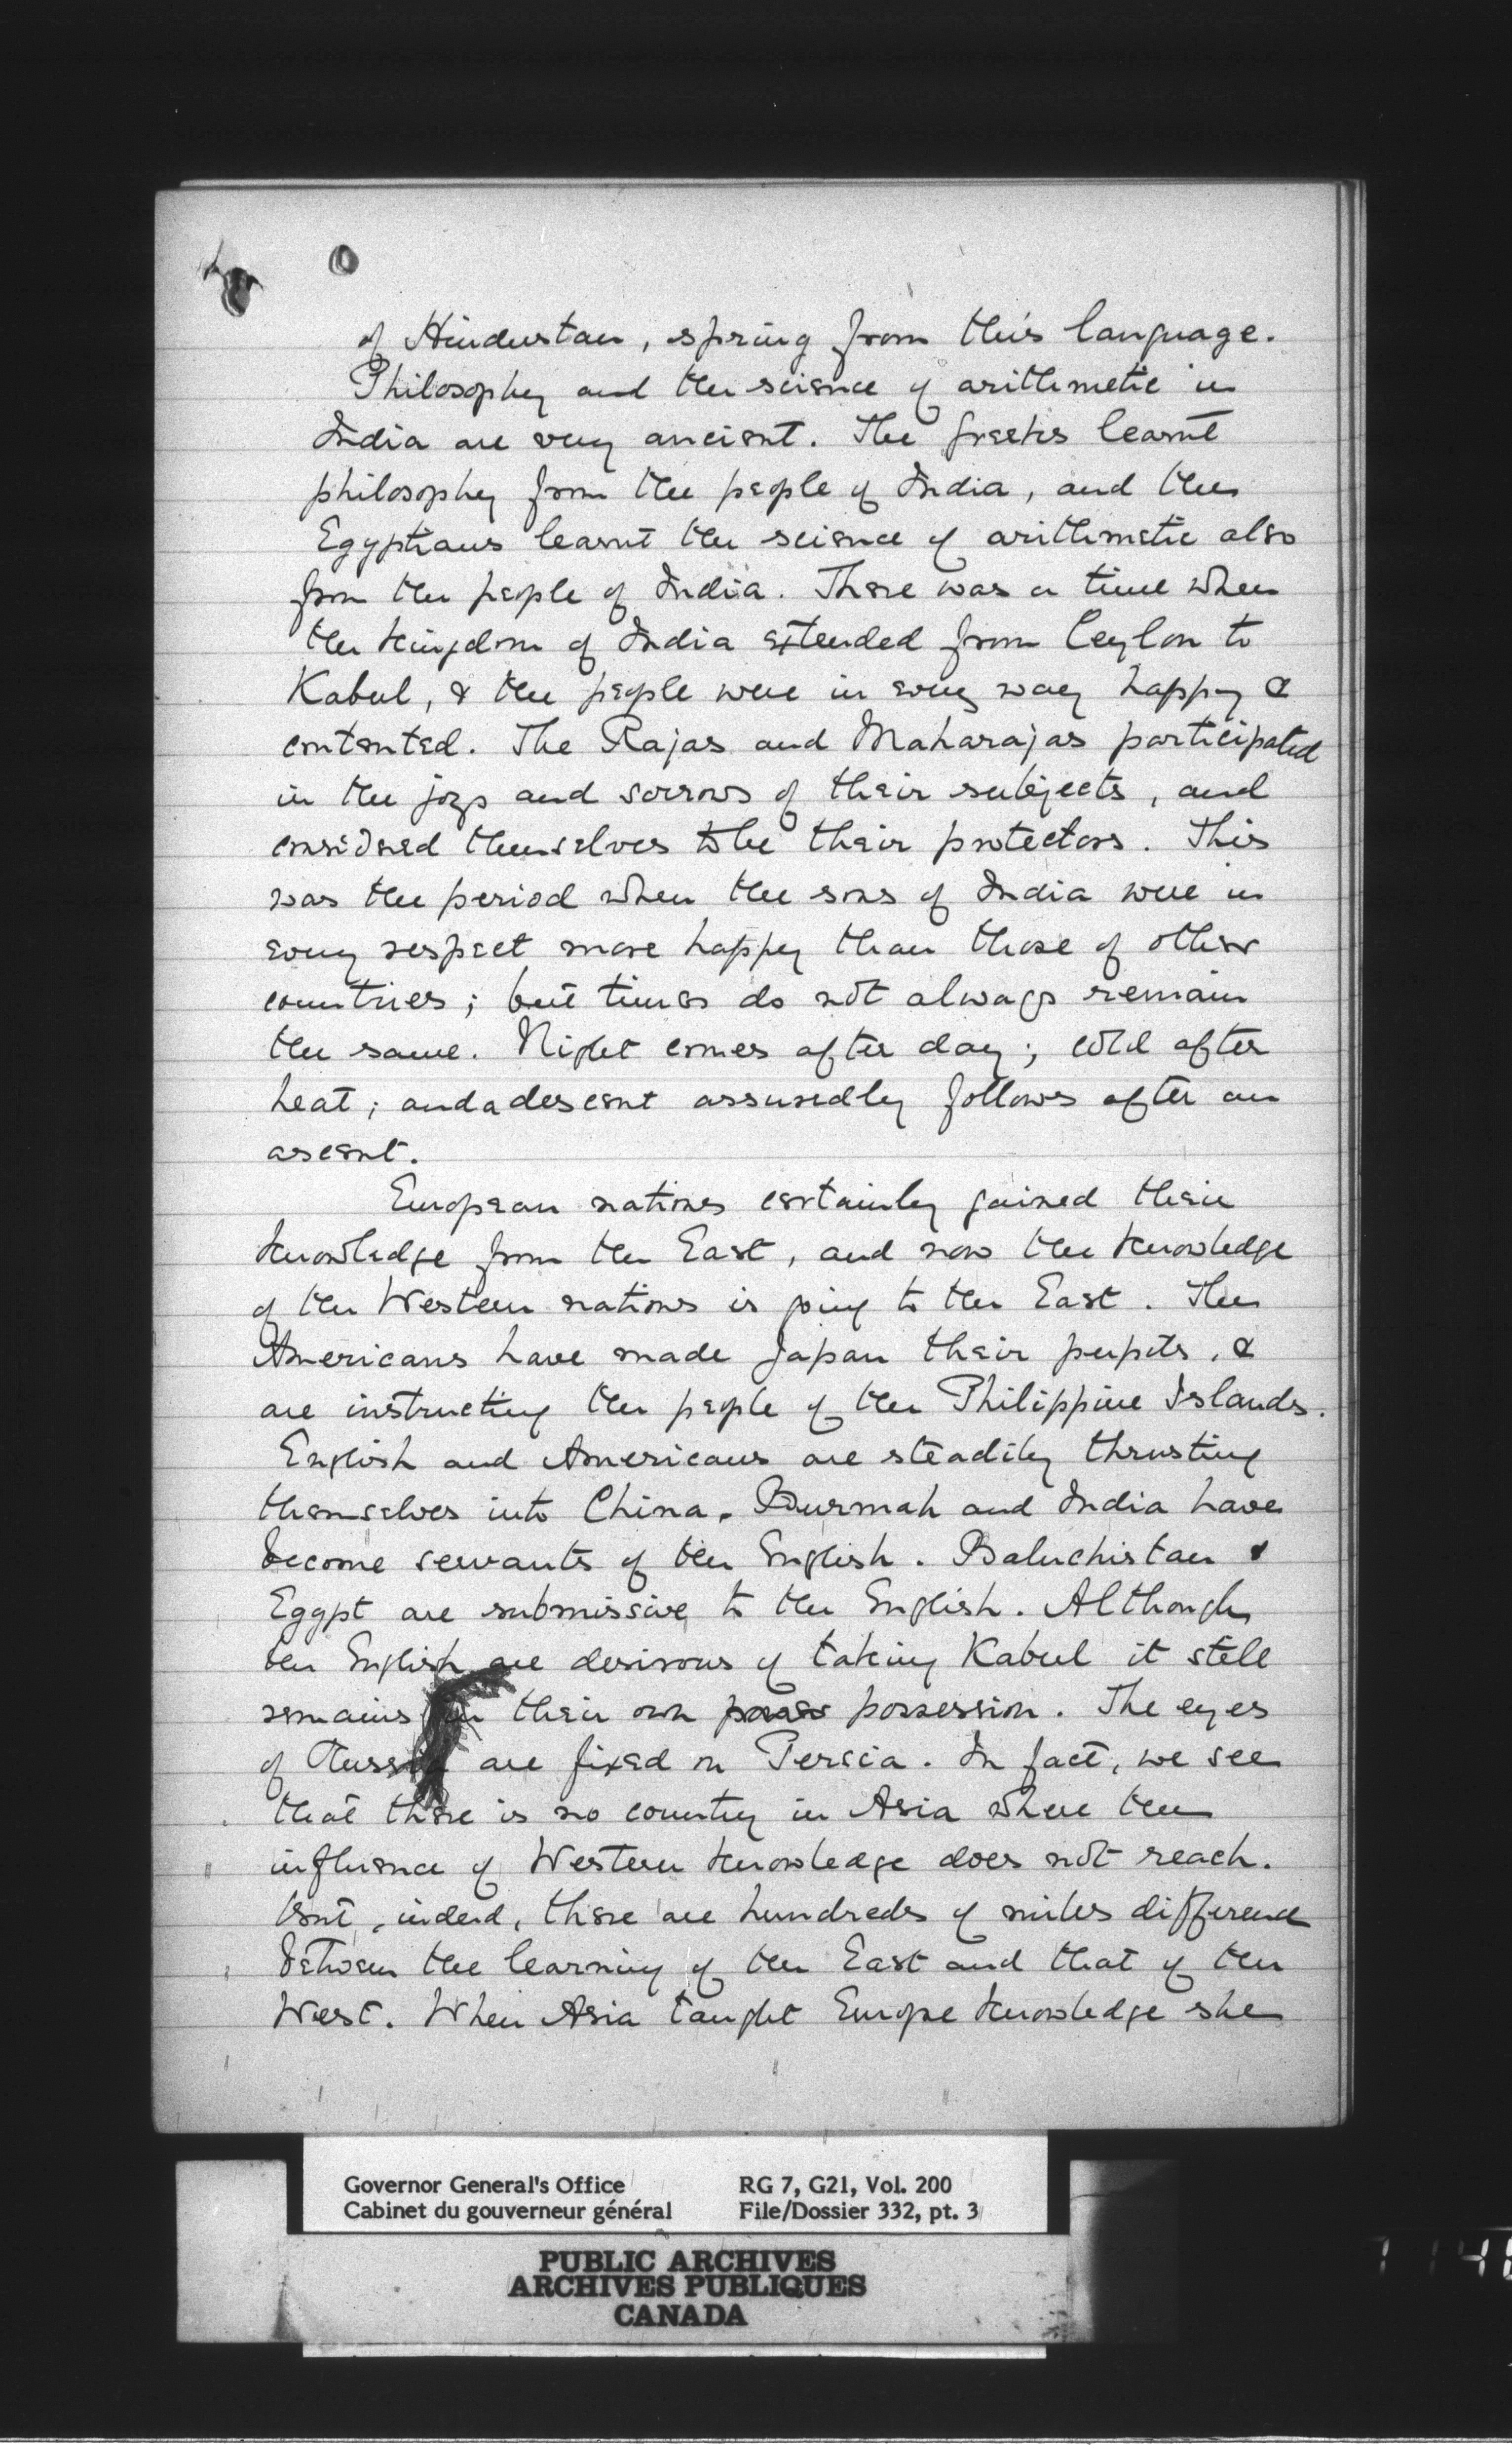 of Hindustan, spring from this language.
Philosophy and the science of arithmetic in
India are very ancient. The Greeks learnt
philosophy from the people of India, and the
Egyptians learnt the science of arithmetic also
from the people of India. There was a time when
the Kingdom of India extended from Ceylon to
Kabul, & the people were in every way happy &
contented. The Rajas and Maharajas participated
in the joys and sorrows of their subjects, and
considered themselves to be their protectors. This
was the period when the sons of India were in
every respect more happy than those of other
countries; but times do not always remain
the same. Night comes after day; cold after
heat; and a descent assuredly follows after an
ascent.
European nations certainly gained their
knowledge from the East, and now the knowledge
of the Western nations is going to the East. The
Americans have made Japan their pupils, &
are instructing the people of the Philippine Islands.
English and Americans are steadily thrusting
themselves into China. Burmah and India have
become servants of the English. Baluchistan &
Egypt are submissive to the English. Although
the English are desirous of taking Kabul it still
remains in their own possession. The eyes
of Russia are fixed on Persia. In fact, we see
that there is no country in Asia where the
influence of Western knowledge does not reach.
But, indeed, there are hundreds of miles difference
between the learning of the East and that of the
West. When Asia taught Europe knowledge she
Governor General's Office RG 7, G21, Vol. 200
Cabinet du gouverneur général File/Dossier 332, pt. 3
PUBLIC ARCHIVES
ARCHIVES PUBLIQUES
CANADA